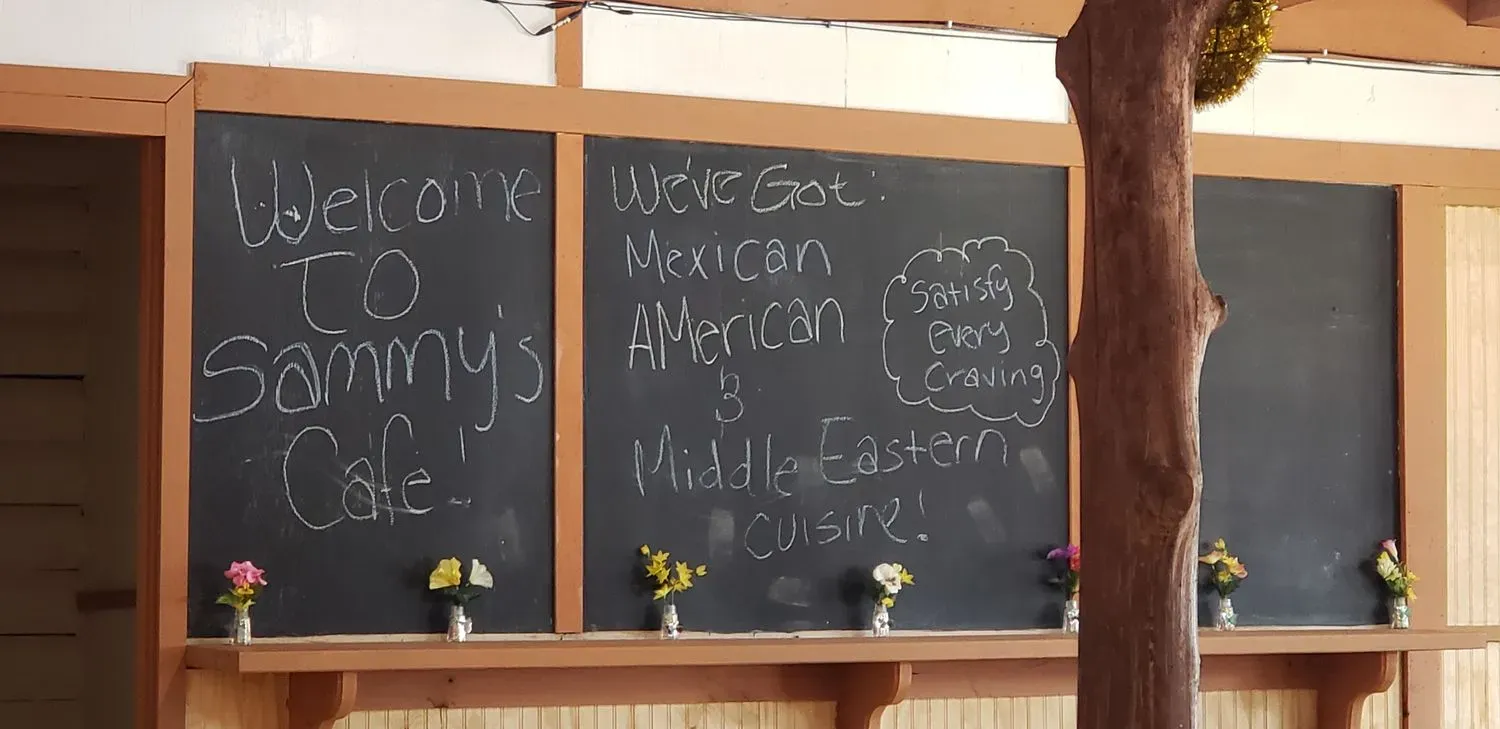 Welcome
TO
Sammy's
Cafe!
We've Got:
Mexican
AMerican
&
Middle Eastern
cuisine!
Satisfy
every
Craving